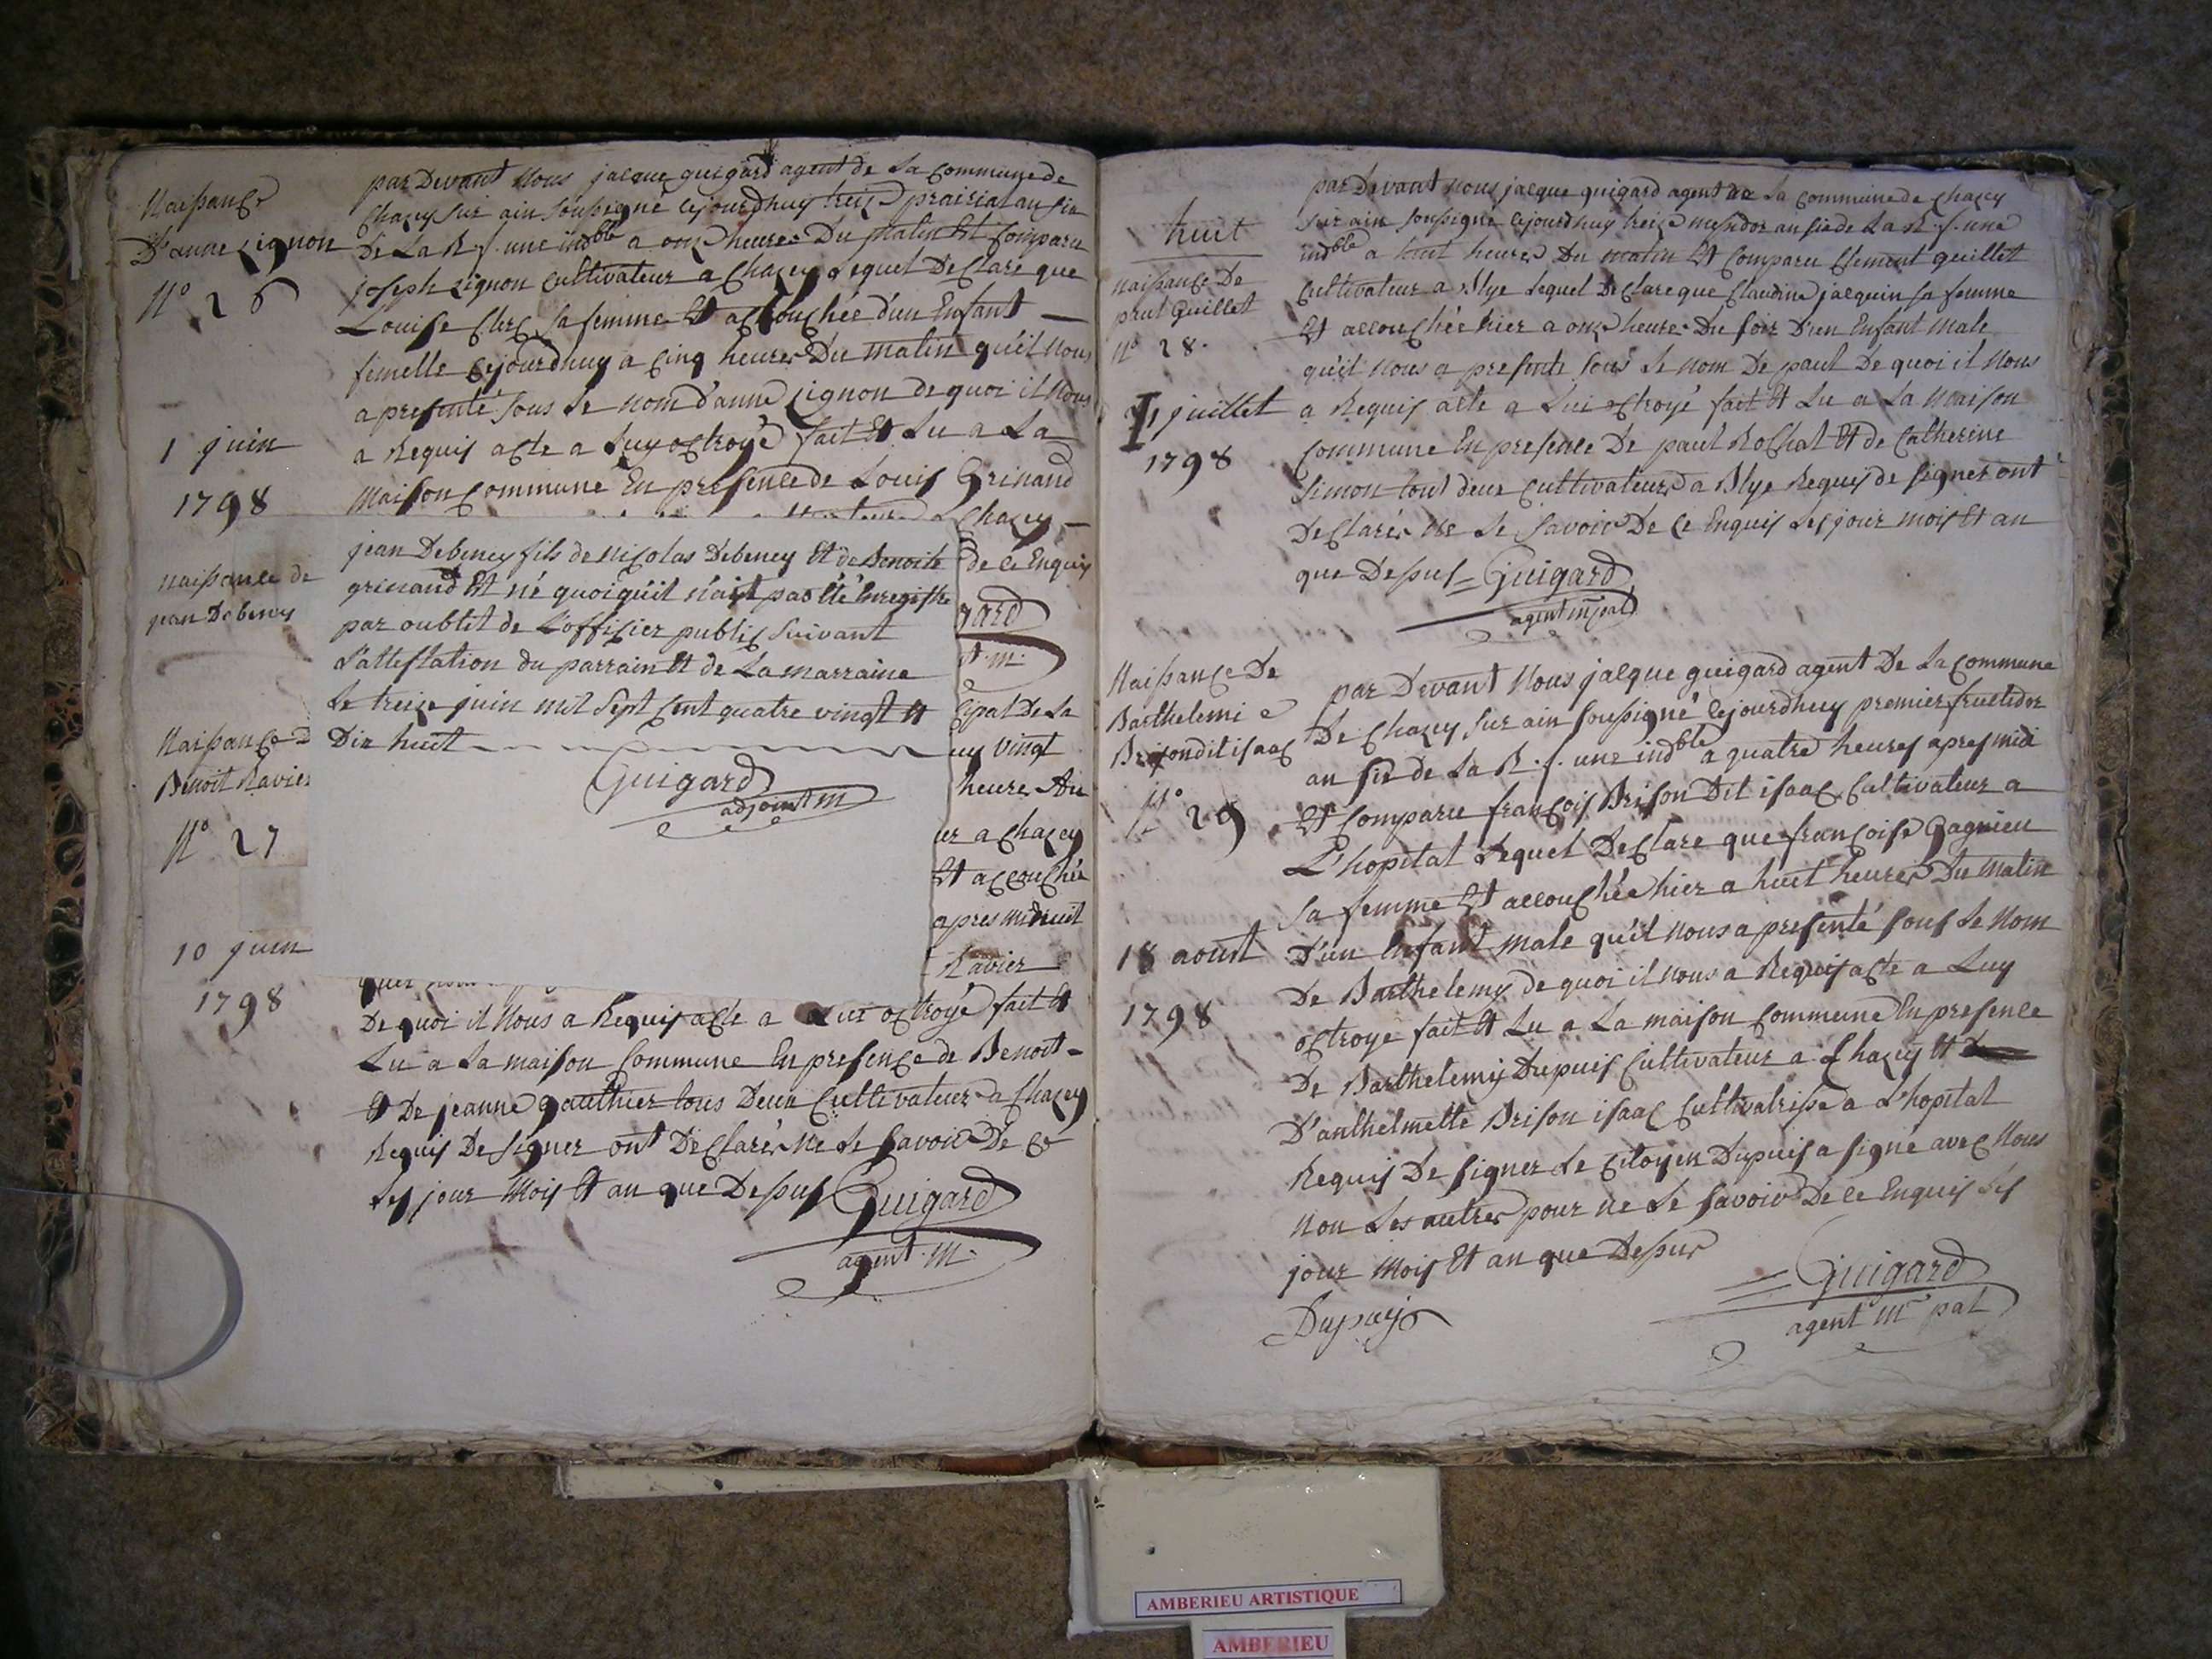 Naissance
D'anne Lignon
N° 26
1 juin
1798
par Devant Nous jacque guigard agent de La Commune de
Chazey sur ain soussigné cejourdhuy treize prairial an six
De La R. f. une indble a onze heures Du matin Et Comparu
joseph Lignon Cultivateur a Chazey Lequel Declare que
Louise Clerc sa femme Et accouchée d'un Enfant
femelle cejourdhuy a cinq heures Du matin qu'il nous
a presenté sous Le nom d'anne Lignon de quoi il nous
a Requis acte a Luy octroyé fait Et Lu a La
Maison Commune En presence de Louis Grinand
a Chazey
de ce Enquis
gard
t. m.
naissance de
jean Debeney
jean Debeney fils de Nicolas Debeney Et de Benoite
grinand Et né quoiqu'il n'ait pas été Enregistre
par oublit de L'officier public suivant
L'attestation du parrain Et de La marraine
Le treize juin mil sept Cent quatre vingt Et
Dix huit
Guigard
adjoint m
Naissance D
Benoit Ravier
N° 27
10 juin
1798
cipal De La
uy vingt
heure Du
ur a Chazey
Et accouchée
apres midnuit
Ravier
De quoi il Nous a Requis acte a Lui octroyé fait Et
Lu a La maison Commune En presence de Benoit
Et De jeanne gauthier tous Deux Cultivateur a Chazey
Requis De signer ont Declarés Ne Le savoir De Ce
Les jour Mois Et an que Dessus Guigard
agent m
huit
naissance De
paul Guillet
N° 28
1 juillet
1798
par Devant nous jacque guigard agent de La Commune de Chazey
sur ain soussigné cejourdhuy treize messidor an six de La R. f. une
indble a huit heures Du matin Et Comparu Clement guillet
Cultivateur a Blye Lequel Declare que Claudine jacquin sa femme
Et accouchée hier a onze heures Du soir D'un Enfant male
qu'il nous a presenté sous Le nom De paul De quoi il nous
a Requis acte a Lui octroyé fait Et Lu a La Maison
Commune En presence De paul Rochat Et de Catherine
Simon tous deux Cultivateurs a Blye Requis de signer ont
Declarés Ne Le savoir De Ce Enquis Les jour mois Et an
que Dessus Guigard
agent mpal
Naissance De
Barthelemi
Brison dit isaac
N° 29
18 aoust
1798
par Devant Nous jacque guigard agent De La Commune
De Chazey sur ain soussigné cejourdhuy premier fructidor
an six de La R. f. une indble a quatre heures apres midi
Et Comparu françois Brison Dit isaac Cultivateur a
L'hopital Lequel Declare que françoise Gagnieu
sa femme Et accouchée hier a huit heures Du matin
D'un Enfant male qu'il nous a presenté sous Le Nom
De Barthelemy de quoi il nous a Requis acte a Luy
octroye fait Et Lu a La maison Commune En presence
De Barthelemy Dupuis Cultivateur a Chazey Et
D'anthelmette Brison isaac Cultivatrisse a L'hopital
Requis De signer Le Citoyen Dupuis a signé avec Nous
Non Les autres pour ne Le savoir De Ce Enquis Les
jour Mois Et an que Dessus
Guigard
agent mpal
Dupuis
AMBERIEU ARTISTIQUE
AMBERIEU